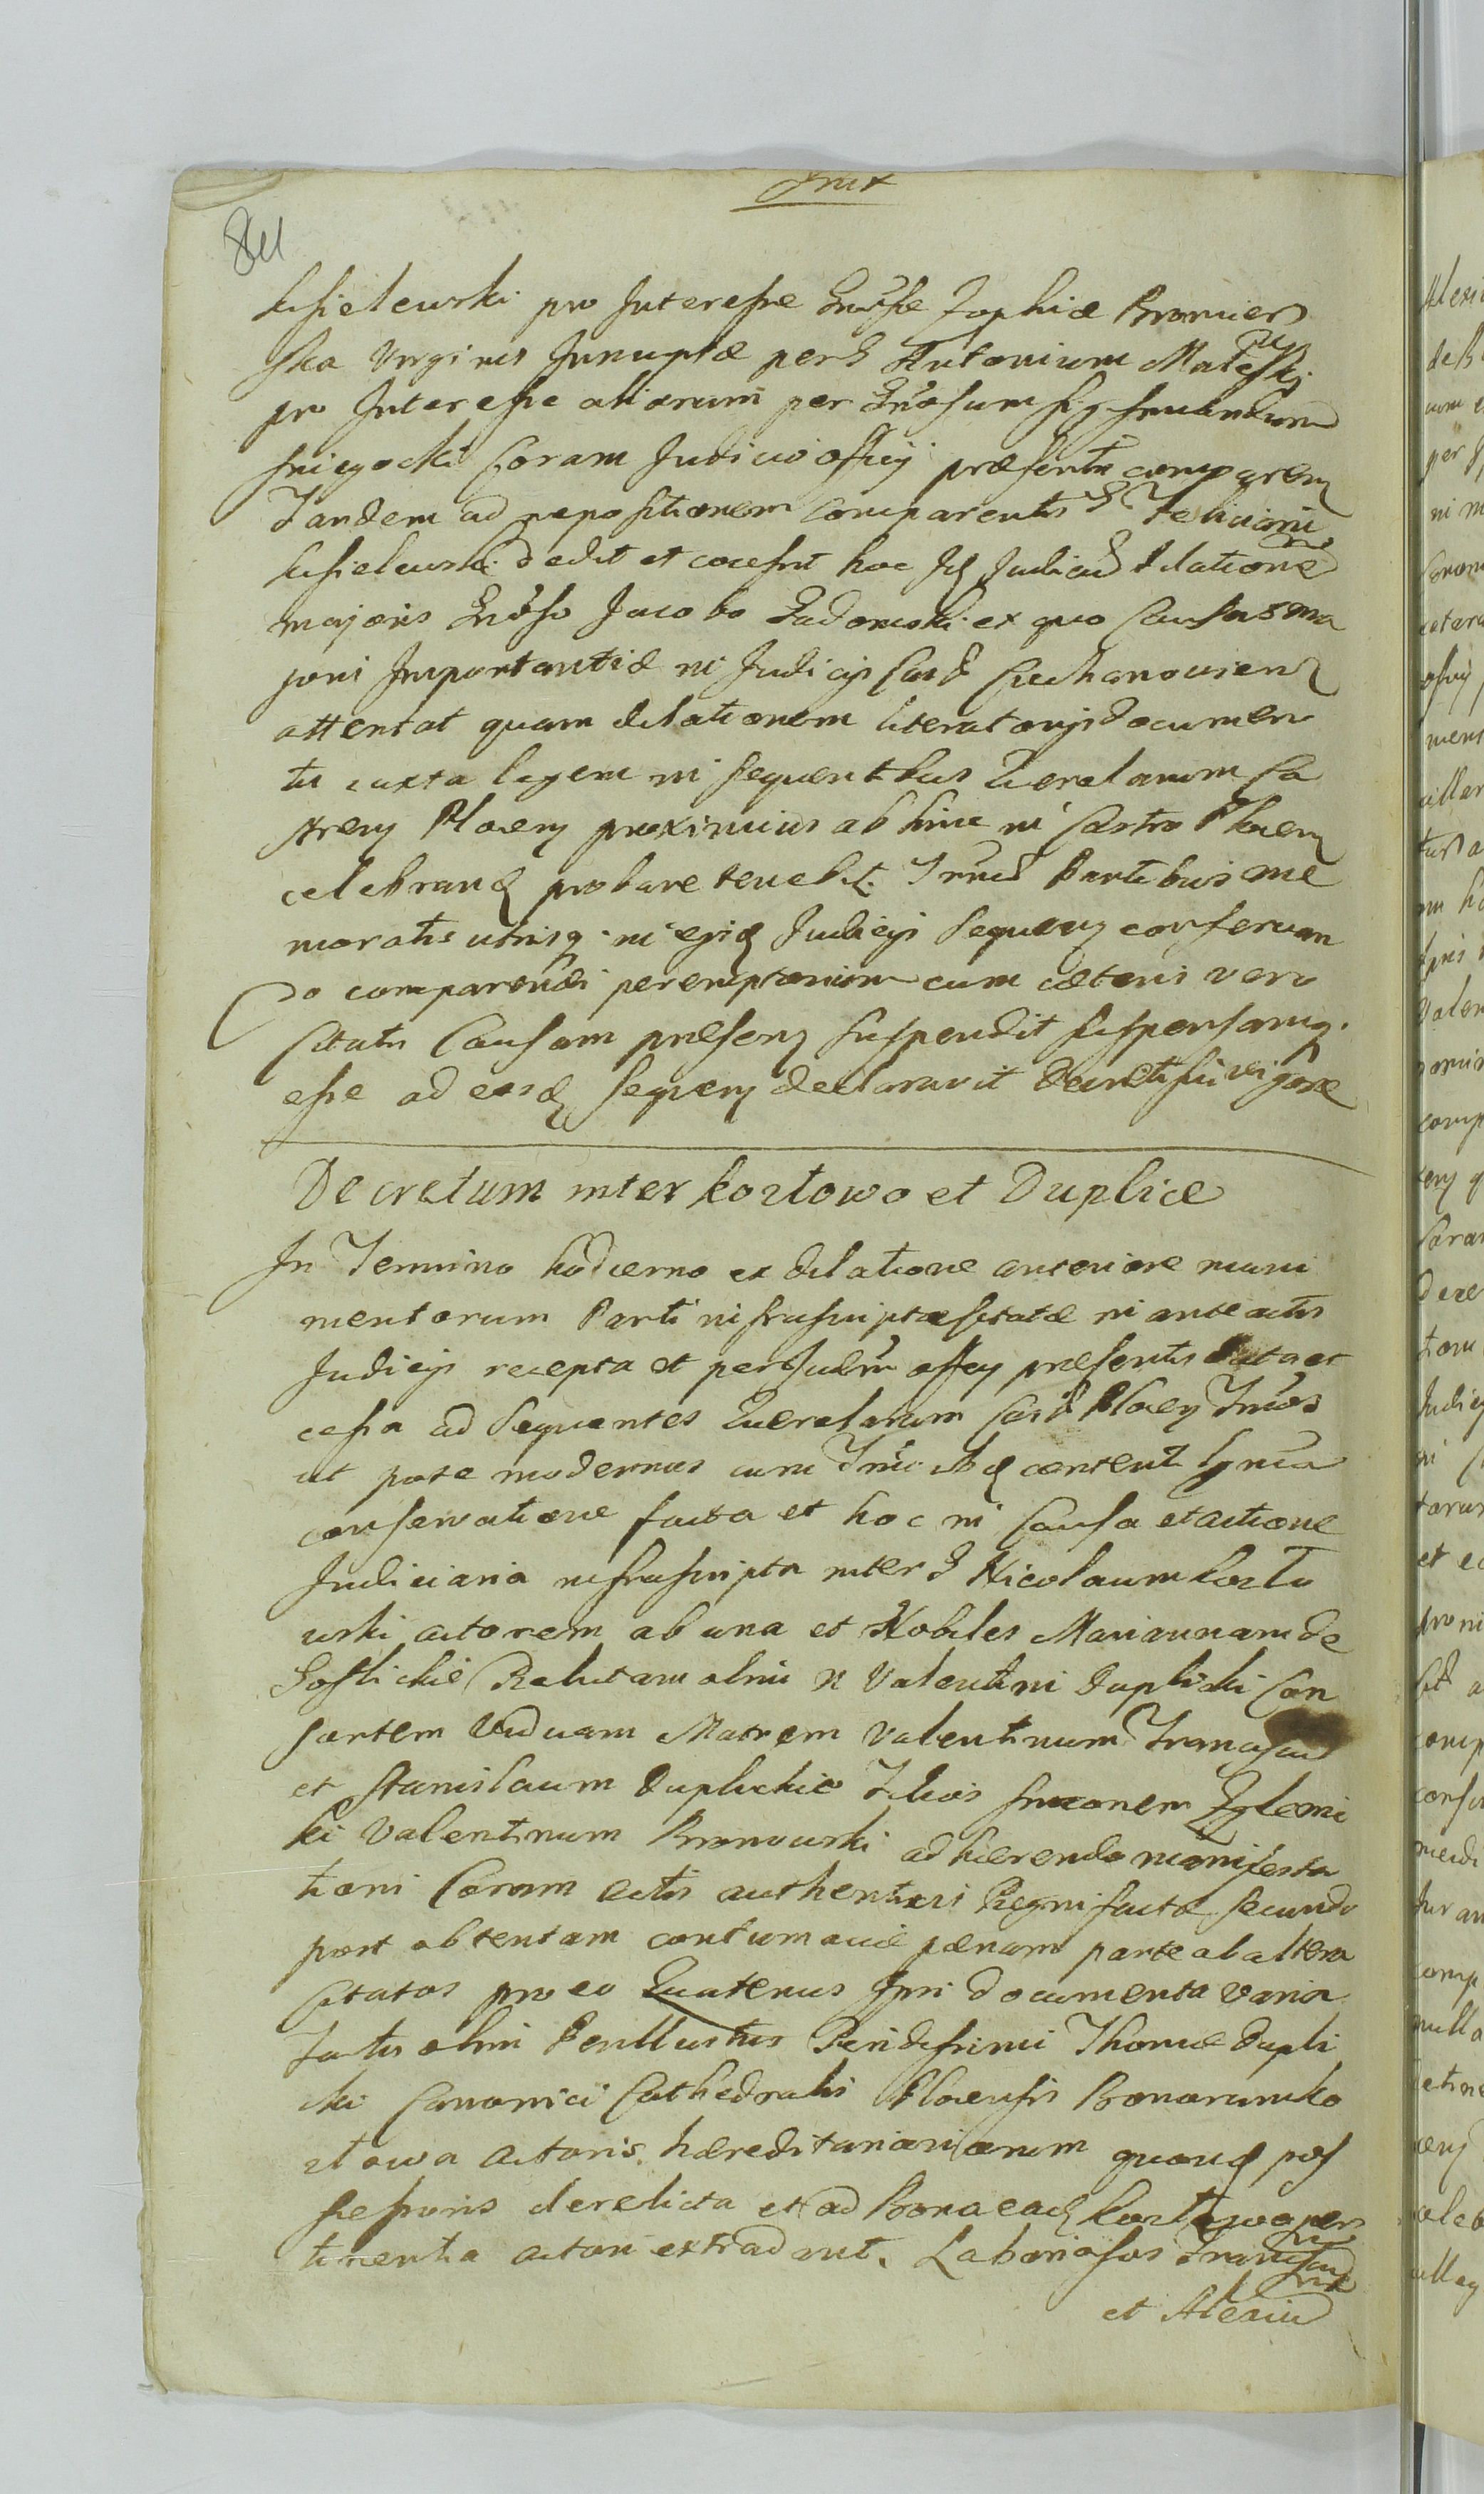 84
Kisielewski pro Interesse Gnosse Zophiæ Bromiers
ska Virginis Innuptæ per G Antonium
pro Interesse aliorum per Gnosum
Coram Judicio officij præsentis comparen
Tandem ad prepositionem comparentis G Feliciani
Kisielewski dedit et concessit hoc Id Judicium dilatione
majoris Gnoso Jacobo Zadomski ex quo Causas ma
joris Importantiæ in Judicijs Cast Ciechanovien
attentat quam dilationem literatorijs documen
tis iuxta legem in sequentibus Querelarum Ca
stren Plocen proximius ab hinc in Castro Plocen
celebrand probare tenebit. Trnud Partibus me
moratis utrisq in ejsd Judicijs Sequen conservan
do comparendi peremptorium cum cæteris vero
Citatis Causam præsen suspendit suspensamq.
esse ad easd Sequen declaravit Decreti sui vigore
Decretum inter Kozłowo et Duplice
In Termino hodierno ex dilatione anteriore muni
mentorum Parti infrascriptæ citatæ in anteactis
Judicijs recepta et per Judm officij præsentis data et
cessa ad Sequentes Querelarum Cast Plocen Trnos
ut pote modernos cum Trni ibid content
conservatione facta et hoc in Causa et actione
Judiciaria infrascripta inter G Nicolaum Kozło
wski actorem ab una et Nobiles Mariannam de
Goslickie Relictam olim N Valentini Duplicki Con
sortem Viduam Matrem Valentinum Franciscum
et Stanislaum Duplickie Filios Simonem Zglenic
ki Valentinum Bromowski adhærendo manifesta
tioni Coram actis authenticis Regni factæ secundo
post obtentam contumaciæ pœnam parte ab altera
Citatos pro eo Quatenus Ipsi documenta varia
factis olim Perillustris Rendissimi Thomæ Dupli
cki Canonici Cathedralis Plocensis Bonorum Ko
złowa actoris hæreditariorum quond pos
sessoris derelicta et ad Bona ead Kozłowo per
tinentia actori extradant. Laboriosos
et Alexium